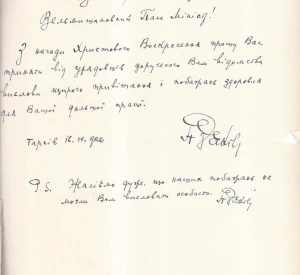 Вельмишановний Пане Міністр!
З нагоди Христового Воскресення прошу Вас
приняти від урядовців дорученого Вам відомства
вислови щирого привітання і побажань здоровля
для Вашої дальшої праці.
Тарнів
P.S. Жаліємо дуже, що наших побажань не
могли Вам висловить особисто.